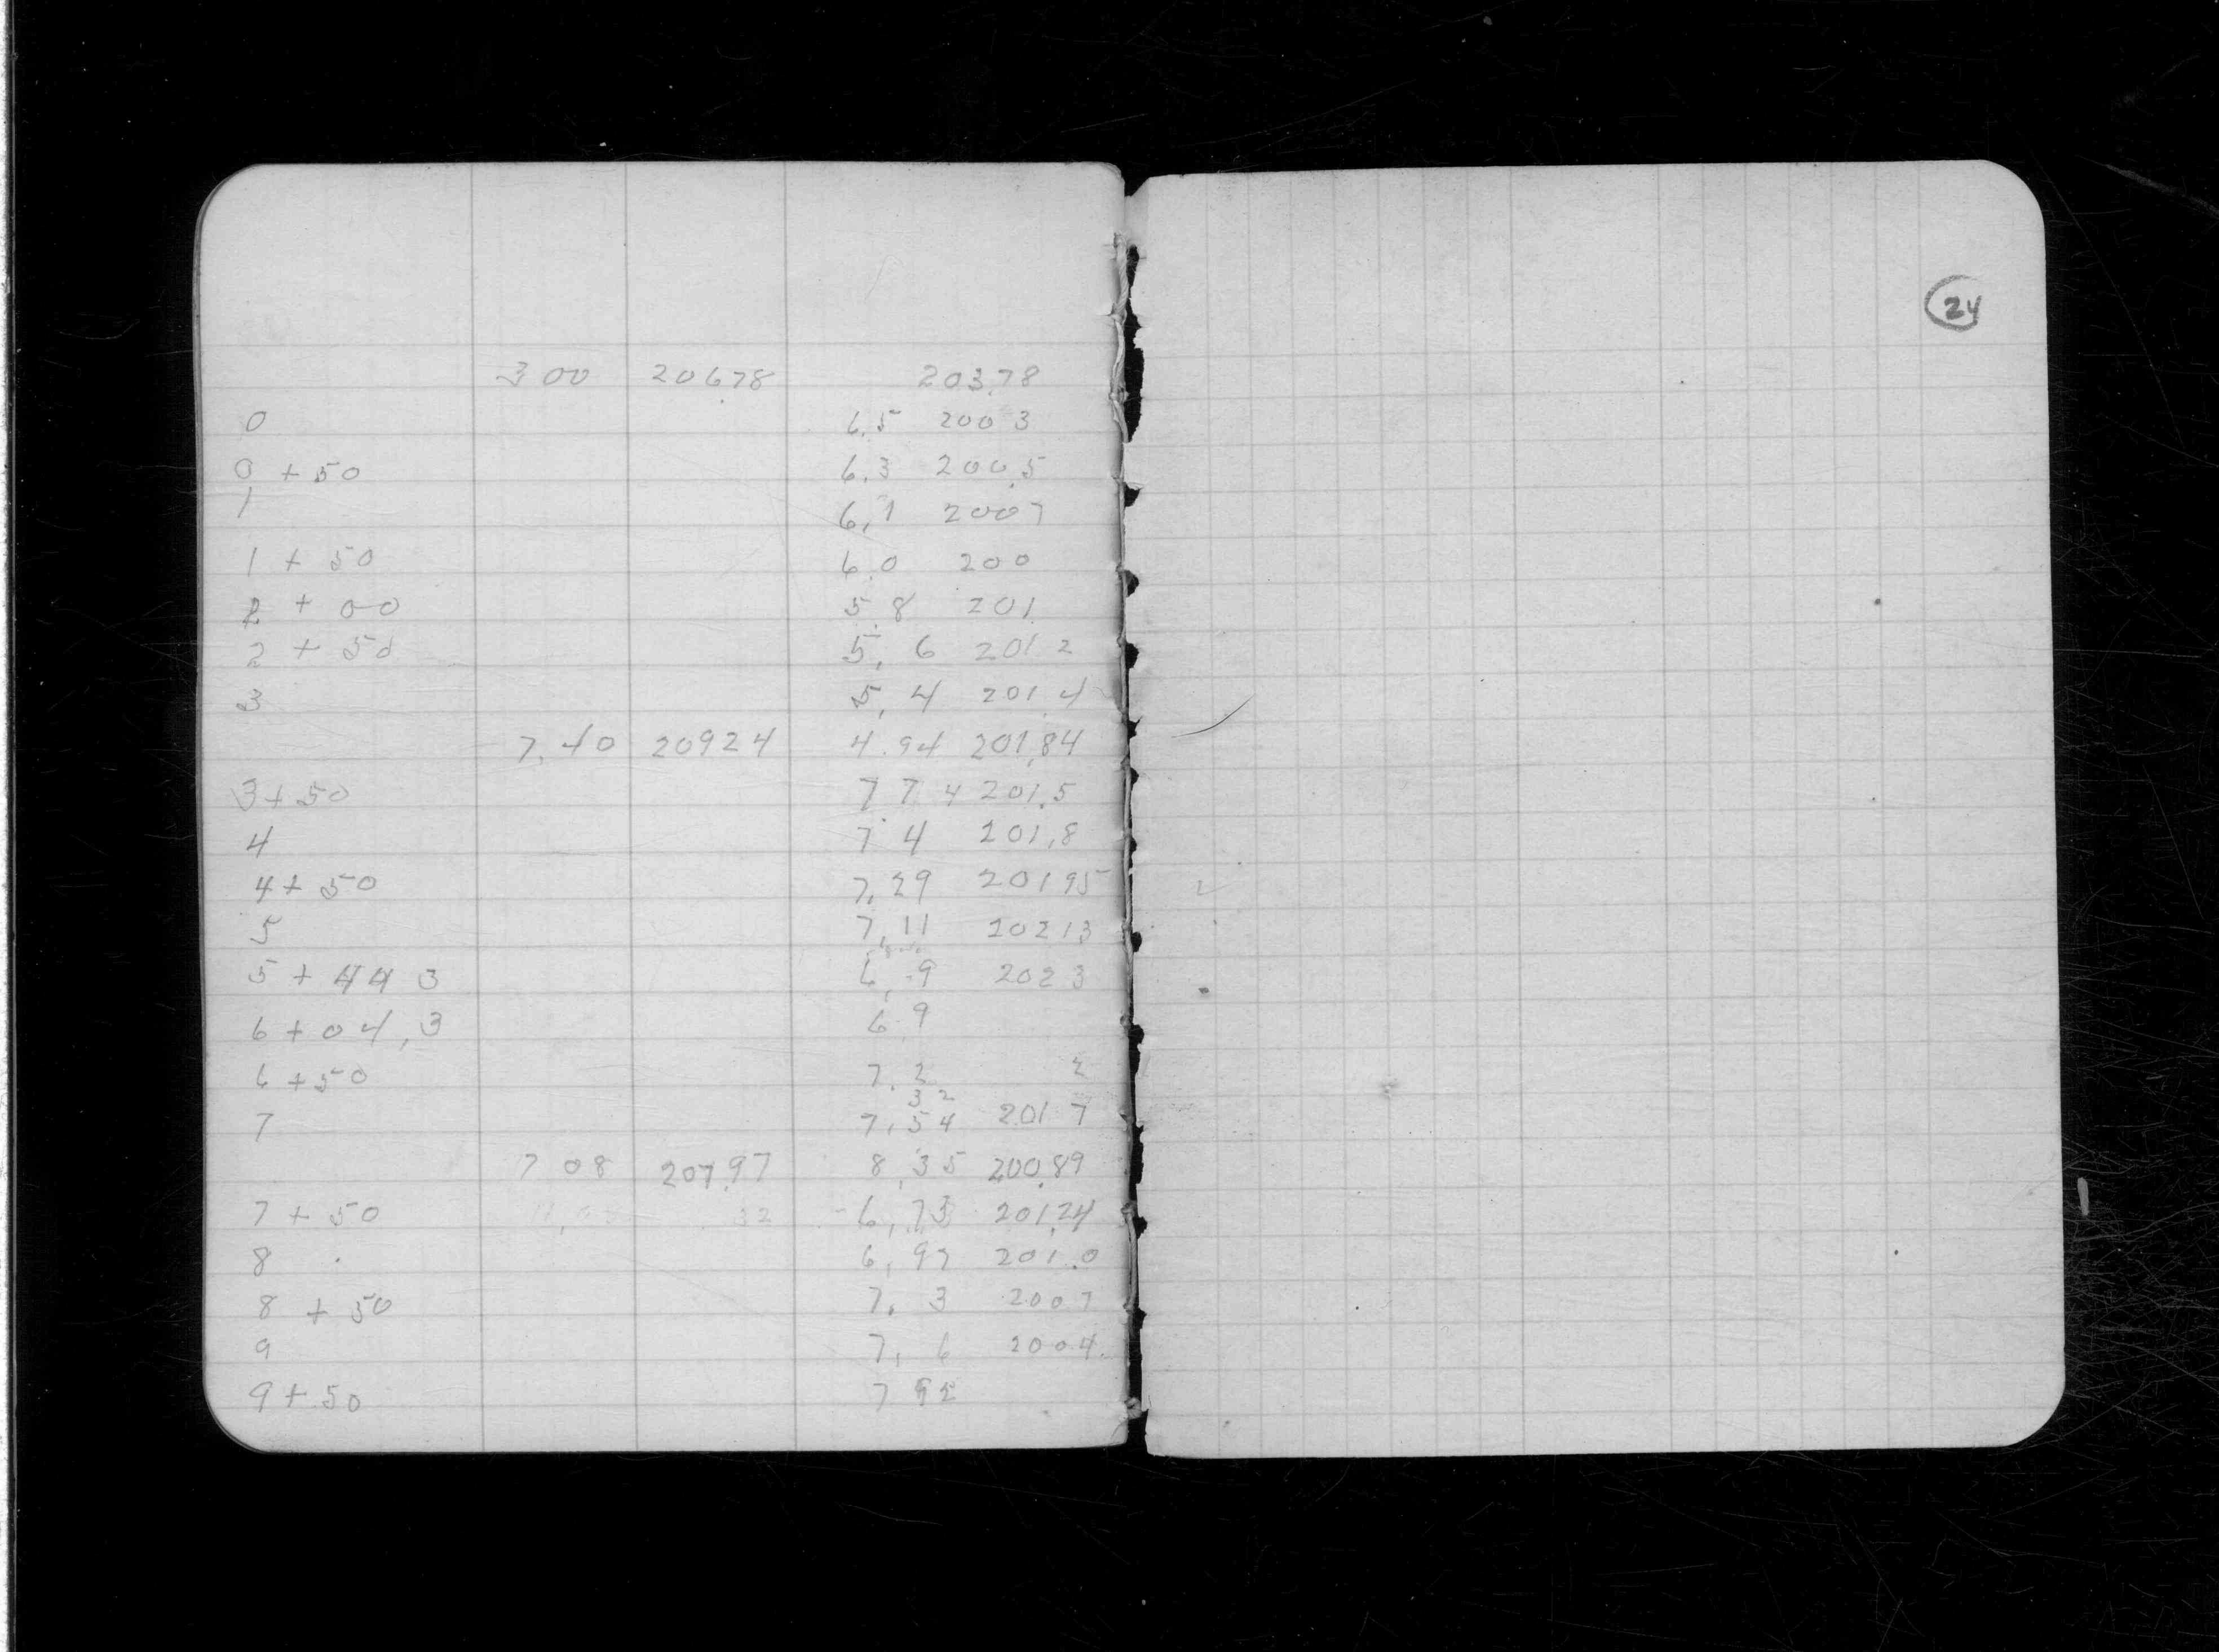 24
3 00 20678 203.78
0 6.5 200 3
0 + 50 6.3 200.5
1 6,1 2007
1 + 50 6.0 200
2 + 00 5.8 201
2 + 50 5, 6 201 2
3 5, 4 201.4
7.40 20924 4.94 201,84
3+50 7 7 4 201.5
4 7 4 201,8
4+ 50 7.29 201 95
5 7,11 202 13
5 + 44 3 6, 9 202 3
6 + 04,3 6 9
6 +50 7. 2 2
3 2
7 7,54 201 7
7 08 207.97 8,35 200.89
7 + 50 6,73 201.24
8 6,97 201.0
8 + 50 7. 3 200 7
9 7, 6 200 4.
9 + 50 7